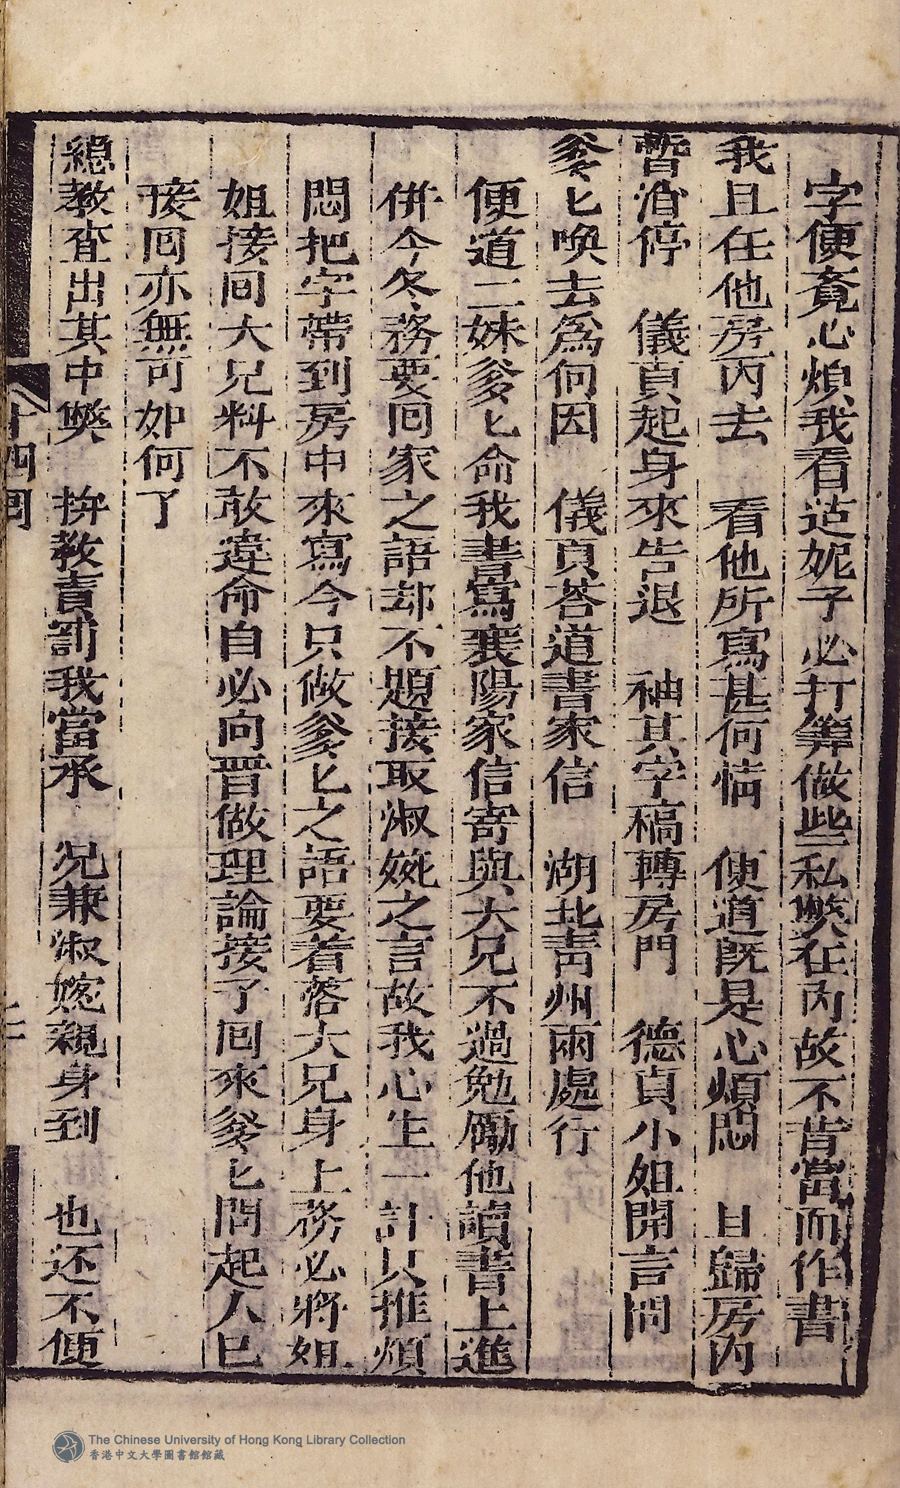 字便竟心煩我看這妮子必打算做些私獘在內故不肯當而作書
我且任他房內去　看他所寫甚何情　便道既是心煩悶　且歸房內
暫消停　儀貞起身來告退　袖其字稿轉房門　德貞小姐開言問
爹匕喚去爲何因　儀貞荅道書家信　湖北靑州兩處行
便道二妹爹匕命我書寫襄陽家信寄與大兄不過勉勵他讀書上進
併今冬務要回家之語却不題接取淑婉之言故我心生一計只推煩
悶把字帶到房中來寫今只做爹匕之語要着落大兄身上務必將姐
姐接回大兄料不敢違命自必向晋做理論接了回來爹匕問起人已
接回亦無可如何了
總教查出其中獘　拚教責罰我當承　兄兼淑婉親身到　也还不便
十四囘
二
The Chinese University of Hong Kong Library Collection
香港中文大學圖書館館藏